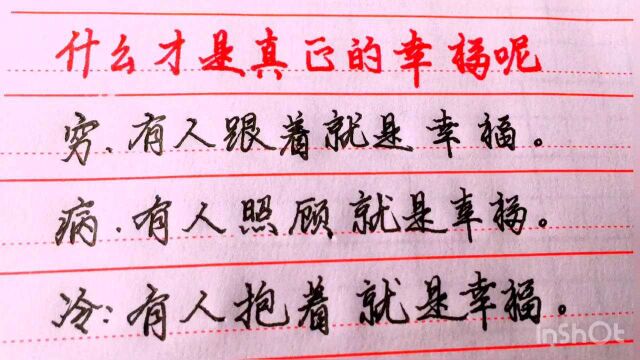 什么才是真正的幸福呢
穷、有人跟着就是幸福。
病、有人照顾就是幸福。
冷：有人抱着就是幸福。
InShOt